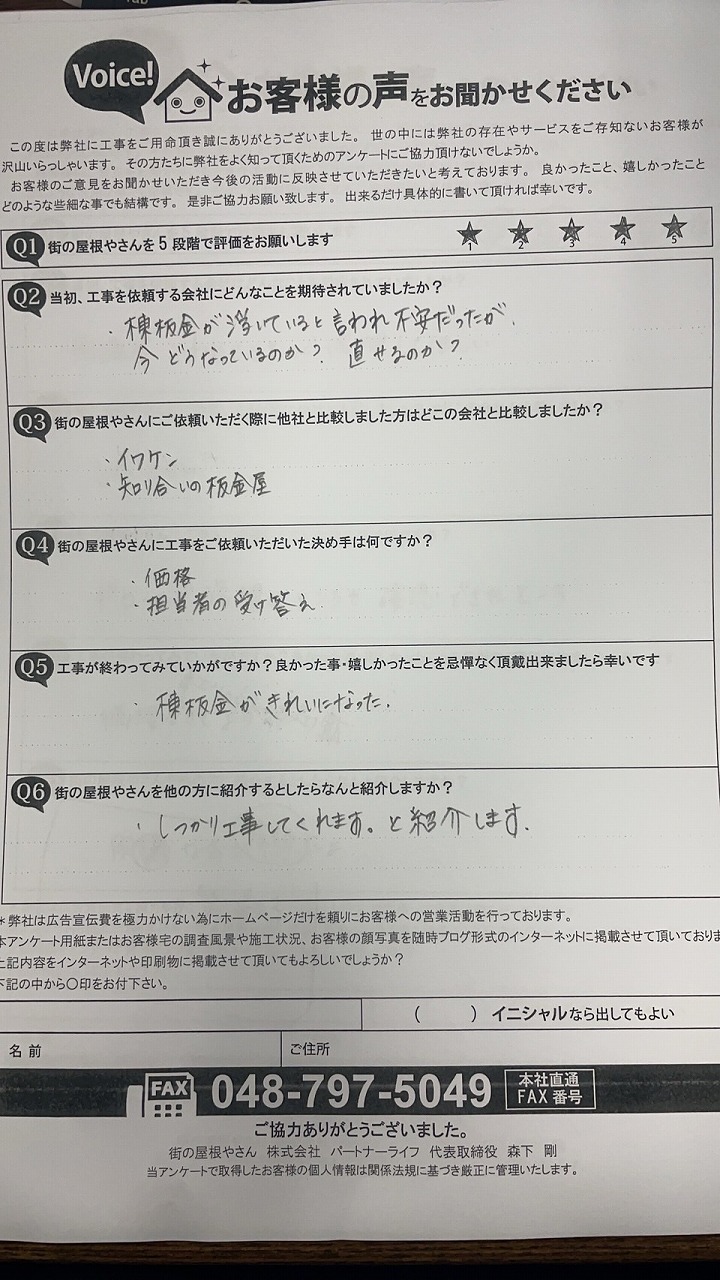 Voice!
お客様の声をお聞かせください
この度は弊社に工事をご用命頂き誠にありがとうございました。 世の中には弊社の存在やサービスをご存知ないお客様が
沢山いらっしゃいます。 その方たちに弊社をよく知って頂くためのアンケートにご協力頂けないでしょうか。
お客様のご意見をお聞かせいただき今後の活動に反映させていただきたいと考えております。 良かったこと、嬉しかったこと
どのような些細な事でも結構です。 是非ご協力お願い致します。 出来るだけ具体的に書いて頂ければ幸いです。
Q1 街の屋根やさんを5段階で評価をお願いします
1 2 3 4 5
Q2 当初、工事を依頼する会社にどんなことを期待されていましたか?
・棟板金が浮いていると言われ不安だったが、
今どうなっているのか? 直せるのか?
Q3 街の屋根やさんにご依頼いただく際に他社と比較しました方はどこの会社と比較しましたか?
・イワケン
・知り合いの板金屋
Q4 街の屋根やさんに工事をご依頼いただいた決め手は何ですか?
・価格
・担当者の受け答え
Q5 工事が終わってみていかがですか?良かった事・嬉しかったことを忌憚なく頂戴出来ましたら幸いです
・棟板金がきれいになった.
Q6 街の屋根やさんを他の方に紹介するとしたらなんと紹介しますか?
・しっかり工事してくれます。と紹介します.
*弊社は広告宣伝費を極力かけない為にホームページだけを頼りにお客様への営業活動を行っております。
本アンケート用紙またはお客様宅の調査風景や施工状況、お客様の顔写真を随時ブログ形式のインターネットに掲載させて頂いておりま
上記内容をインターネットや印刷物に掲載させて頂いてもよろしいでしょうか?
下記の中から〇印をお付下さい。
( ) イニシャルなら出してもよい
名前 ご住所
FAX 048-797-5049 本社直通
FAX番号
ご協力ありがとうございました。
街の屋根やさん 株式会社 パートナーライフ 代表取締役 森下 剛
当アンケートで取得したお客様の個人情報は関係法規に基づき厳正に管理いたします。